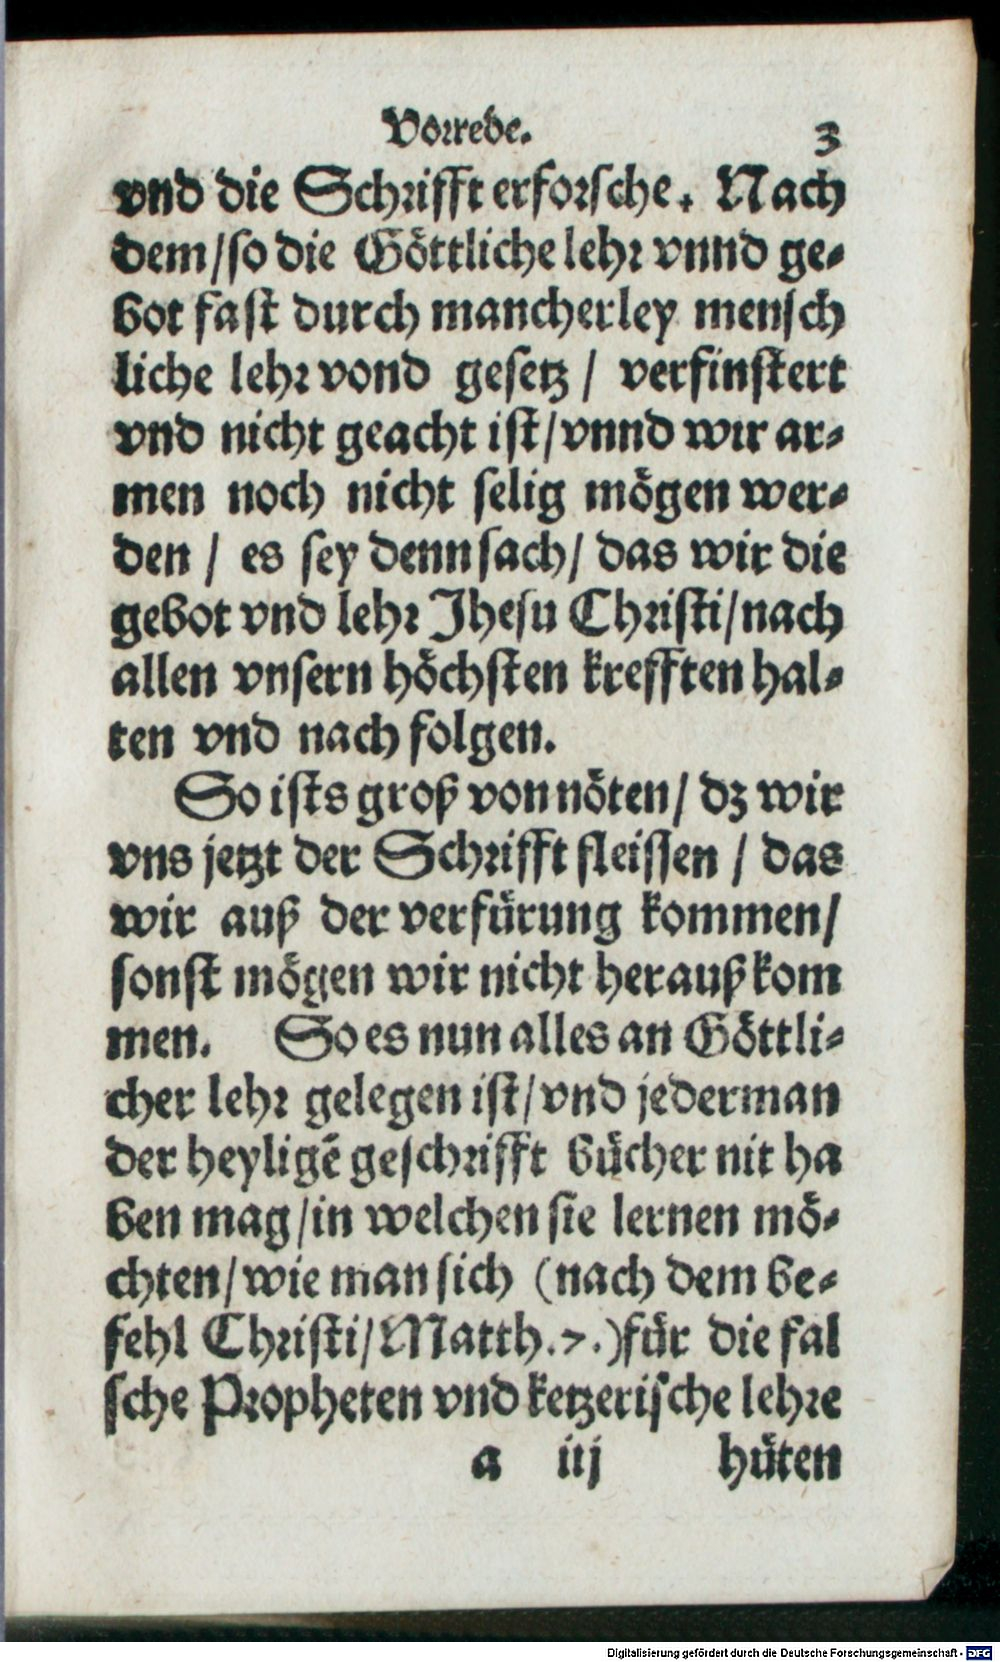 Vorrede. 3
vnd die Schrifft erforsche. Nach
dem/so die Göttliche lehr vnnd ge-
bot fast durch mancherley mensch
liche lehr vond gesetz / verfinstert
vnd nicht geacht ist/vnnd wir ar-
men noch nicht selig mögen wer-
den / es sey denn sach/ das wir die
gebot vnd lehr Jhesu Christi/nach
allen vnsern höchsten krefften hal-
ten vnd nach folgen.
So ists groß von nöten/ dz wir
vns jetzt der Schrifft fleissen / das
wir auß der verfürung kommen/
sonst mögen wir nicht herauß kom
men. So es nun alles an Göttli-
cher lehr gelegen ist/vnd jederman
der heyligẽ geschrifft bücher nit ha
ben mag/in welchen sie lernen mö-
chten/wie man sich (nach dem be-
fehl Christi/Matth.7.)für die fal
sche Propheten vnd ketzerische lehre
a iij hüten
Digitalisierung gefördert durch die Deutsche Forschungsgemeinschaft - DFG